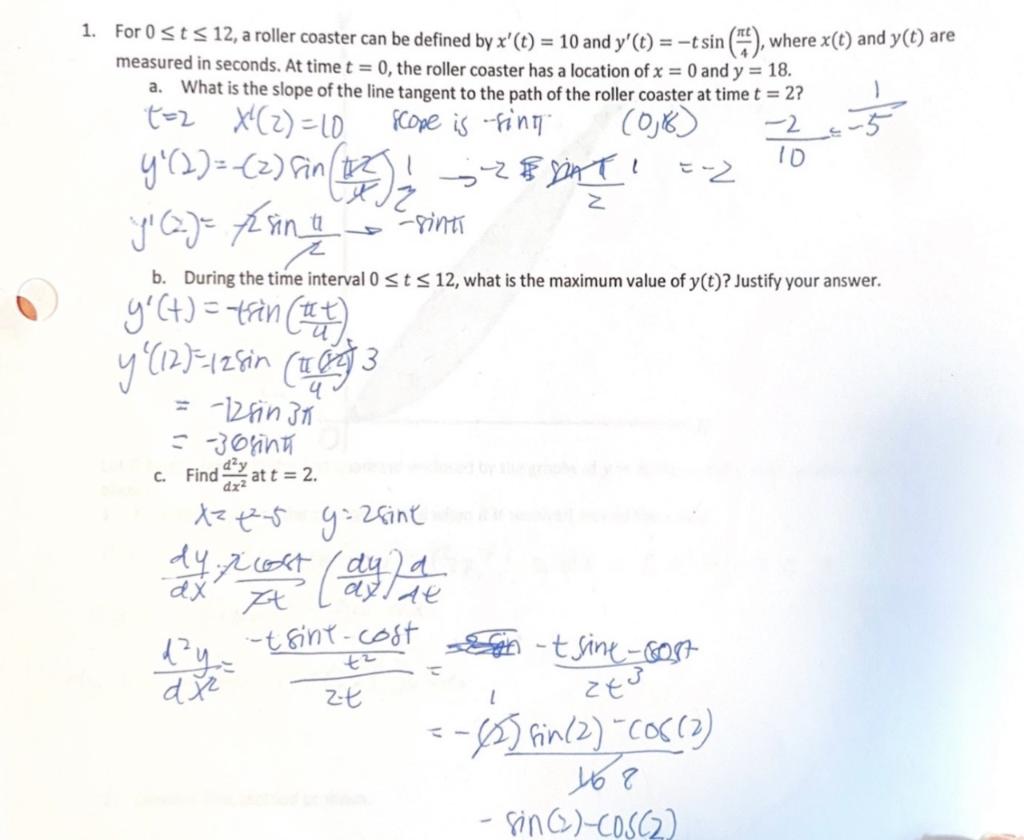 1. For 0 ≤ t ≤ 12, a roller coaster can be defined by x'(t) = 10 and y'(t) = −t sin (πt/4), where x(t) and y(t) are
measured in seconds. At time t = 0, the roller coaster has a location of x = 0 and y = 18.
a. What is the slope of the line tangent to the path of the roller coaster at time t = 2?
t=2 x'(2)=10 slope is -sinπ (0,18) -2/10 = 1/-5
y'(2)=-(2)sin(π2/4) 1 2 → -2 sin π/2 1 = -2
y'(2)= -2 sin π/2 → -sinπ
b. During the time interval 0 ≤ t ≤ 12, what is the maximum value of y(t)? Justify your answer.
y'(t) = -tsin(πt/4)
y'(12)=-12sin (π(12)/4) 3
= -12sin 3π
= -36sinπ
c. Find d²y/dx² at t = 2.
x= t²-5 y=2sint
dy/dx = 2cost/2t (dy/dx) d/dt
d²y/dx² = (-tsint-cost/t²)/2t = -tsint-cost/2t³
= -(2)sin(2)-cos(2)/16 1 8
- sin(2)-cos(2)